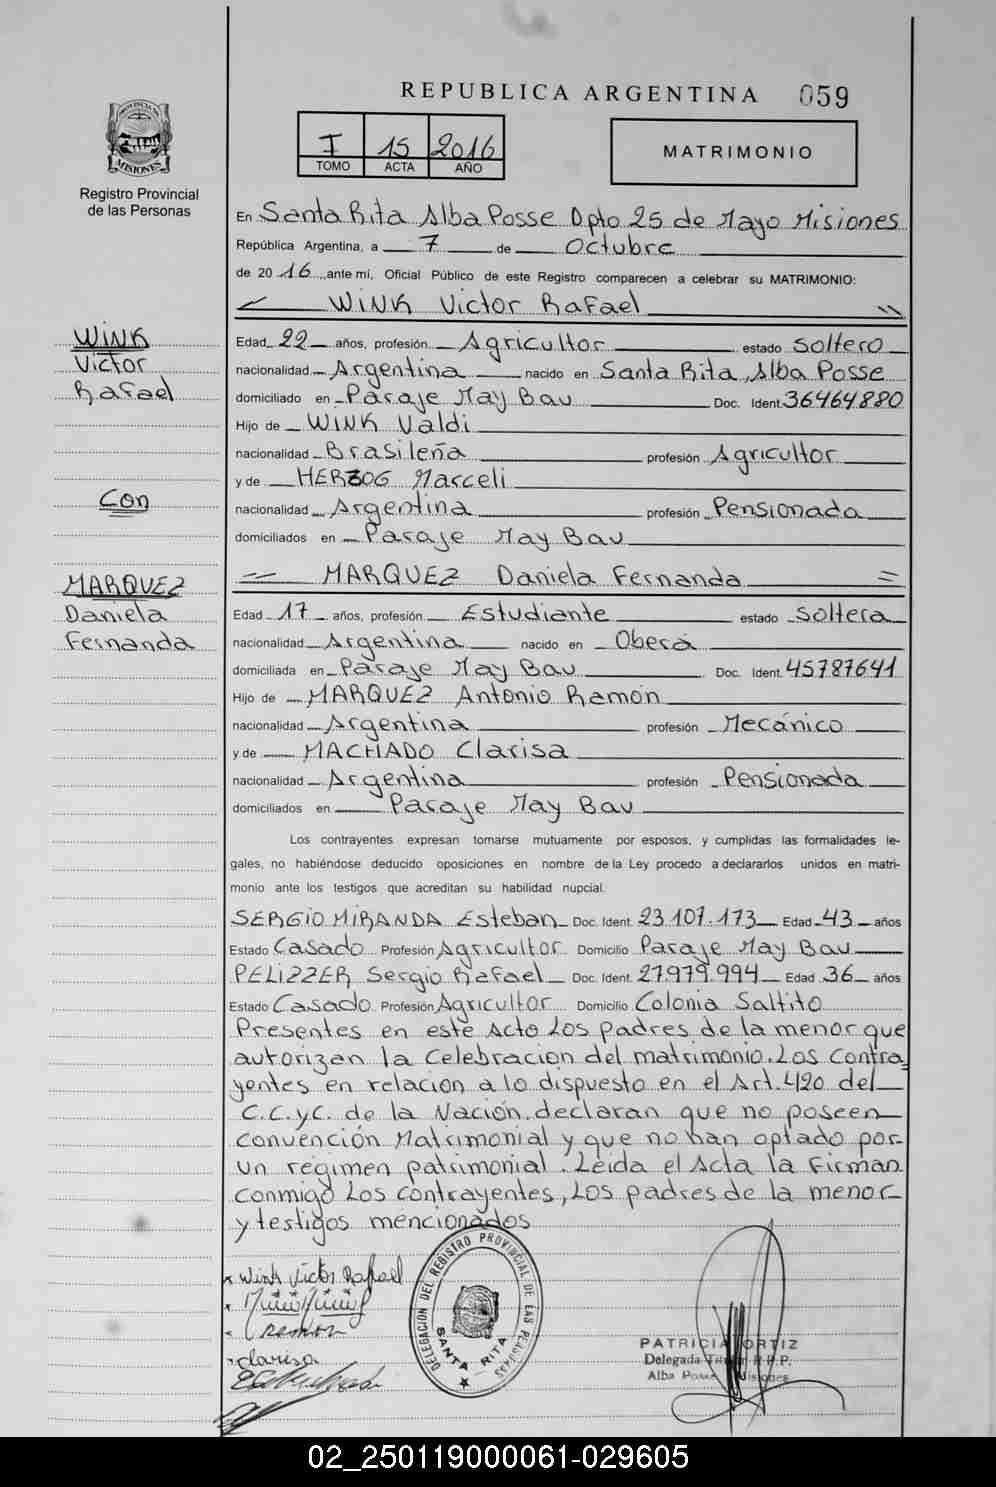 REPUBLICA ARGENTINA 059
PROVINCIA DE
MISIONES
Registro Provincial
de las Personas
I 15 2016
TOMO ACTA AÑO
MATRIMONIO
En Santa Rita Alba Posse Dpto 25 de Mayo Misiones
República Argentina, a 7 de Octubre
de 2016, ante mí, Oficial Público de este Registro comparecen a celebrar su MATRIMONIO:
WINK Victor Rafael
WINK
Victor
Rafael
Con
MARQUEZ
Daniela
Fernanda
Edad 22 años, profesión Agricultor estado Soltero
nacionalidad Argentina nacido en Santa Rita, Alba Posse
domiciliado en Paraje May Bau Doc. Ident. 36464880
Hijo de WINK Valdi
nacionalidad Brasileña profesión Agricultor
y de HERZOG Marceli
nacionalidad Argentina profesión Pensionada
domiciliados en Paraje May Bau
MARQUEZ Daniela Fernanda
Edad 17 años, profesión Estudiante estado Soltera
nacionalidad Argentina nacido en Oberá
domiciliada en Paraje May Bau Doc. Ident. 45787641
Hijo de MARQUEZ Antonio Ramón
nacionalidad Argentina profesión Mecánico
y de MACHADO Clarisa
nacionalidad Argentina profesión Pensionada
domiciliados en Paraje May Bau
Los contrayentes expresan tomarse mutuamente por esposos, y cumplidas las formalidades le-
gales, no habiéndose deducido oposiciones en nombre de la Ley procedo a declararlos unidos en matri-
monio ante los testigos que acreditan su habilidad nupcial.
SERGIO MIRANDA Esteban Doc. Ident. 23.107.173 Edad 43 años
Estado Casado Profesión Agricultor Domicilio Paraje May Bau
PELIZZER Sergio Rafael Doc. Ident. 27.979.994 Edad 36 años
Estado Casado Profesión Agricultor Domicilio Colonia Saltito
Presentes en este Acto Los padres de la menor que
autorizan la Celebración del matrimonio. Los Contra=
yentes en relacion a lo dispuesto en el Art. 420 del
C.C.yC. de la Nación, declaran que no poseen
Convención Matrimonial y que no han optado por
un regimen patrimonial. Leida el Acta la Firman
Conmigo Los Contrayentes, Los padres de la menor
y testigos mencionados
Wink Victor Rafael
Ramon
clarisa
DELEGACION DEL REGISTRO PROVINCIAL DE LAS PERSONAS
SANTA RITA
PATRICIA ORTIZ
Delegada Titular R.P.P.
Alba Posse Misiones
02_250119000061-029605